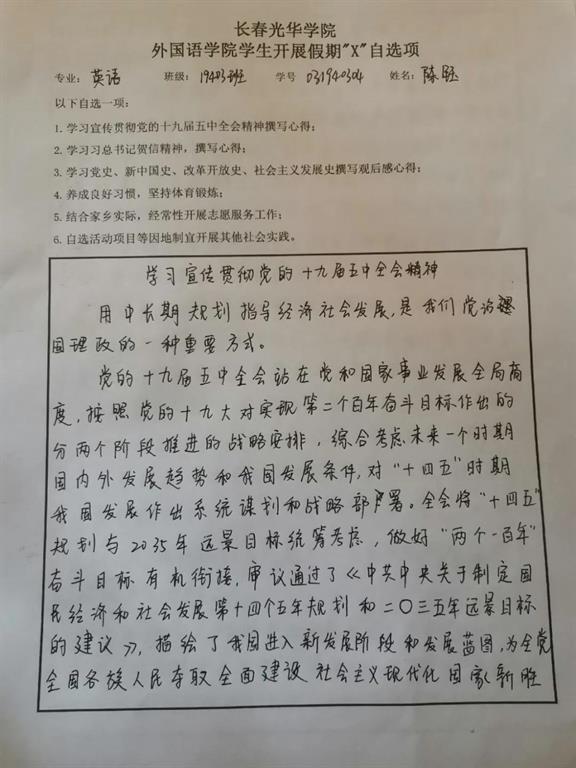 长春光华学院
外国语学院学生开展假期"X"自选项
专业：英语 班级：19403班 学号 031940304 姓名：陈
以下自选一项：
1.学习宣传贯彻党的十九届五中全会精神撰写心得；
2.学习习总书记贺信精神，撰写心得；
3.学习党史、新中国史、改革开放史、社会主义发展史撰写观后感心得；
4.养成良好习惯，坚持体育锻炼；
5.结合家乡实际，经常性开展志愿服务工作；
6.自选活动项目等因地制宜开展其他社会实践。
学习宣传贯彻党的十九届五中全会精神
用中长期规划指导经济社会发展，是我们党治
国理政的一种重要方式。
党的十九届五中全会站在党和国家事业发展全局高
度，按照党的十九大对实现第二个百年奋斗目标作出的
分两个阶段推进的战略安排，综合考虑未来一个时期
国内外发展趋势和我国发展条件，对“十四五”时期
我国发展作出系统谋划和战略部署。全会将“十四五”
规划与2035年远景目标统筹考虑，做好“两个一百年”
奋斗目标有机衔接，审议通过了《中共中央关于制定国
民经济和社会发展第十四个五年规划和二〇三五年远景目标
的建议》，描绘了我国进入新发展阶段和发展蓝图，为全党
全国各族人民夺取全面建设社会主义现代化国家新胜